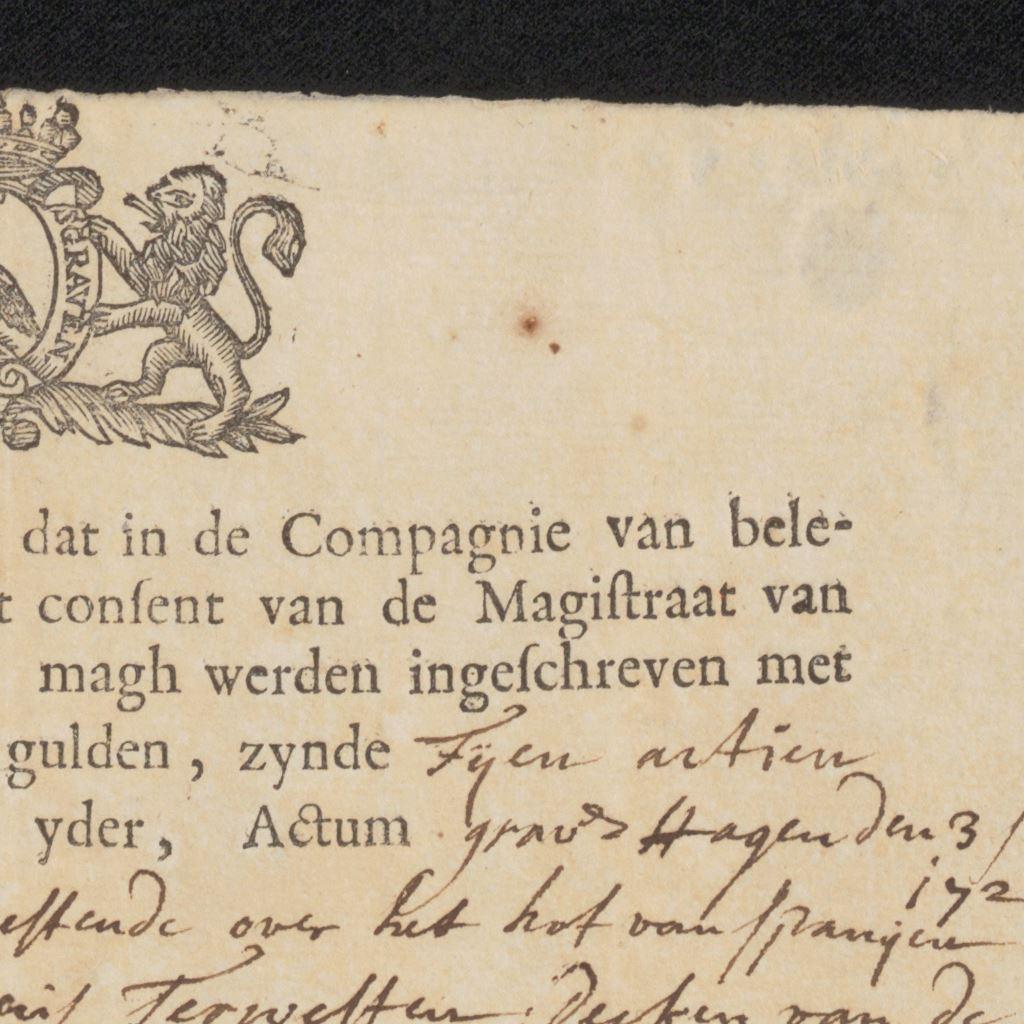 SGRAVEN
dat in de Compagnie van bele-
t conſent van de Magiſtraat van
magh werden ingeſchreven met
gulden, zynde Tijen actien
yder, Actum grav Hagen den 3
172
over het hof van Spanjen
Terweſten
van de